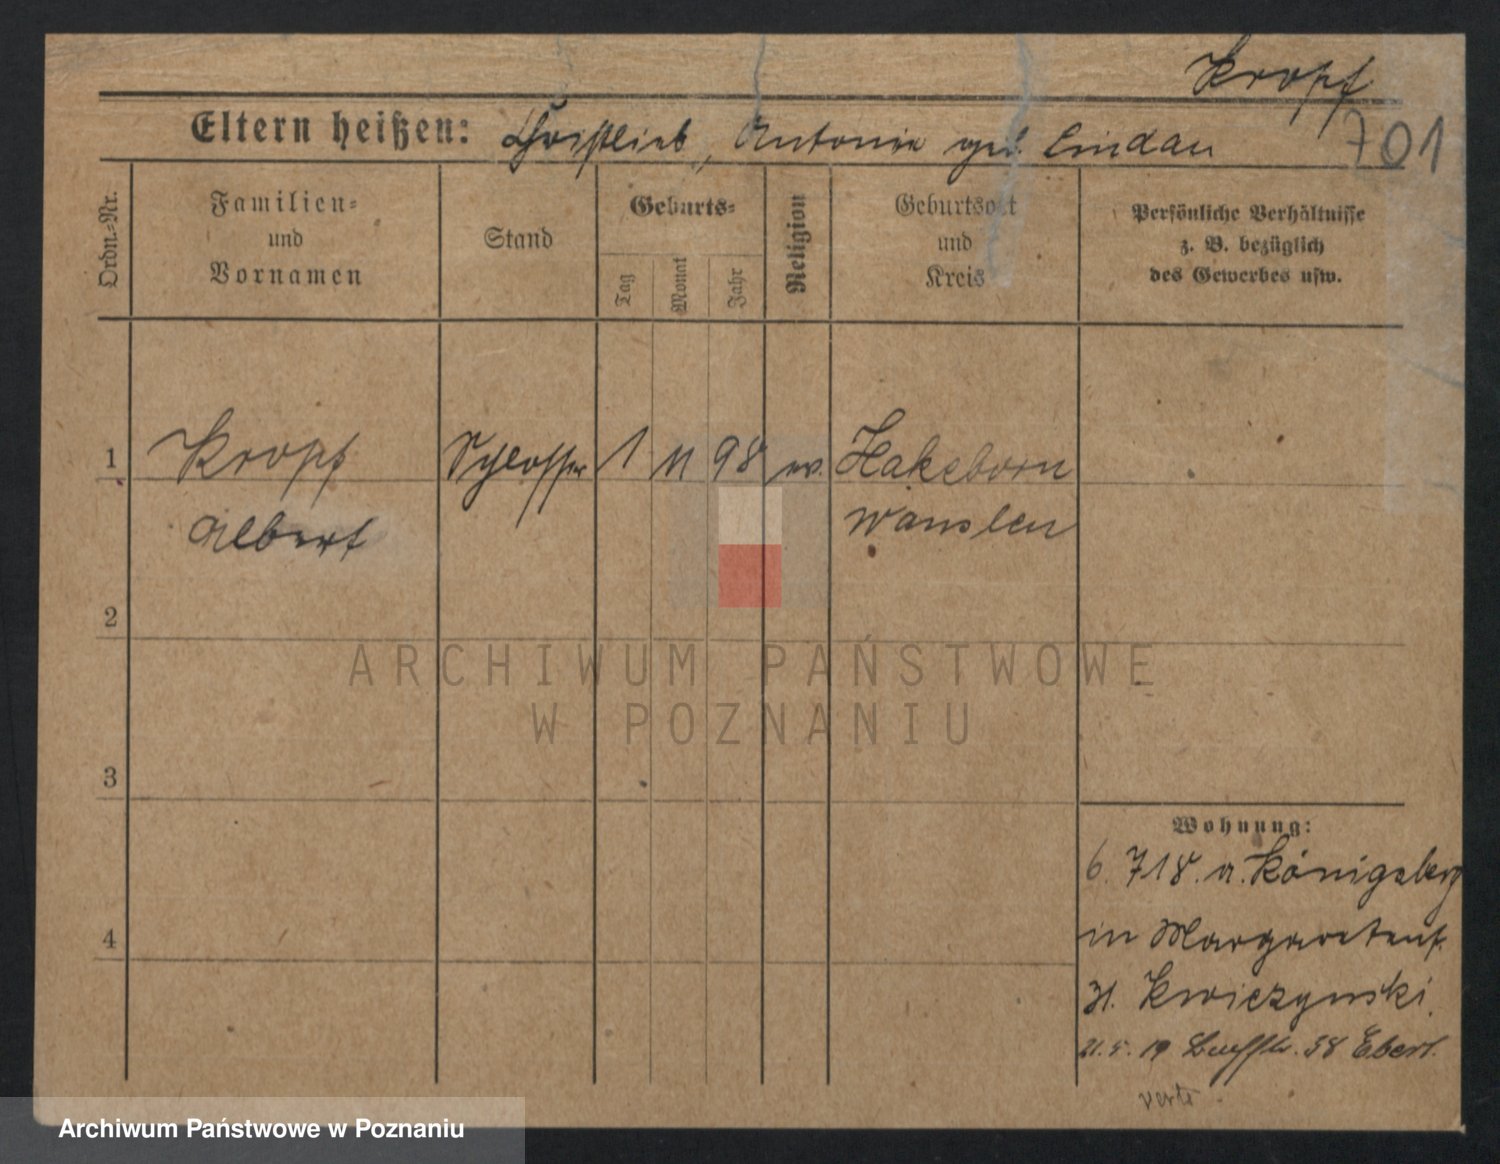 Kropf
701
Eltern heißen: Christlieb, Antonie geb. Lindau
Ordn.-Nr.
Familien-
und
Vornamen
Stand
Geburts-
Tag
Monat
Jahr
Religion
Geburtsort
und
Kreis
Persönliche Verhältnisse
z. B. bezüglich
des Gewerbes usw.
1 Kropf Schlosser 1 11 98 ev. Hakeborn
Albert Wansleben
2
ARCHIWUM PAŃSTWOWE
W POZNANIU
3
Wohnung:
6. 7 18. a. Königsberg
4
in Margaretenst.
31. Kwiczynski
21. 5. 19 58 Ebert.
Archiwum Państwowe w Poznaniu